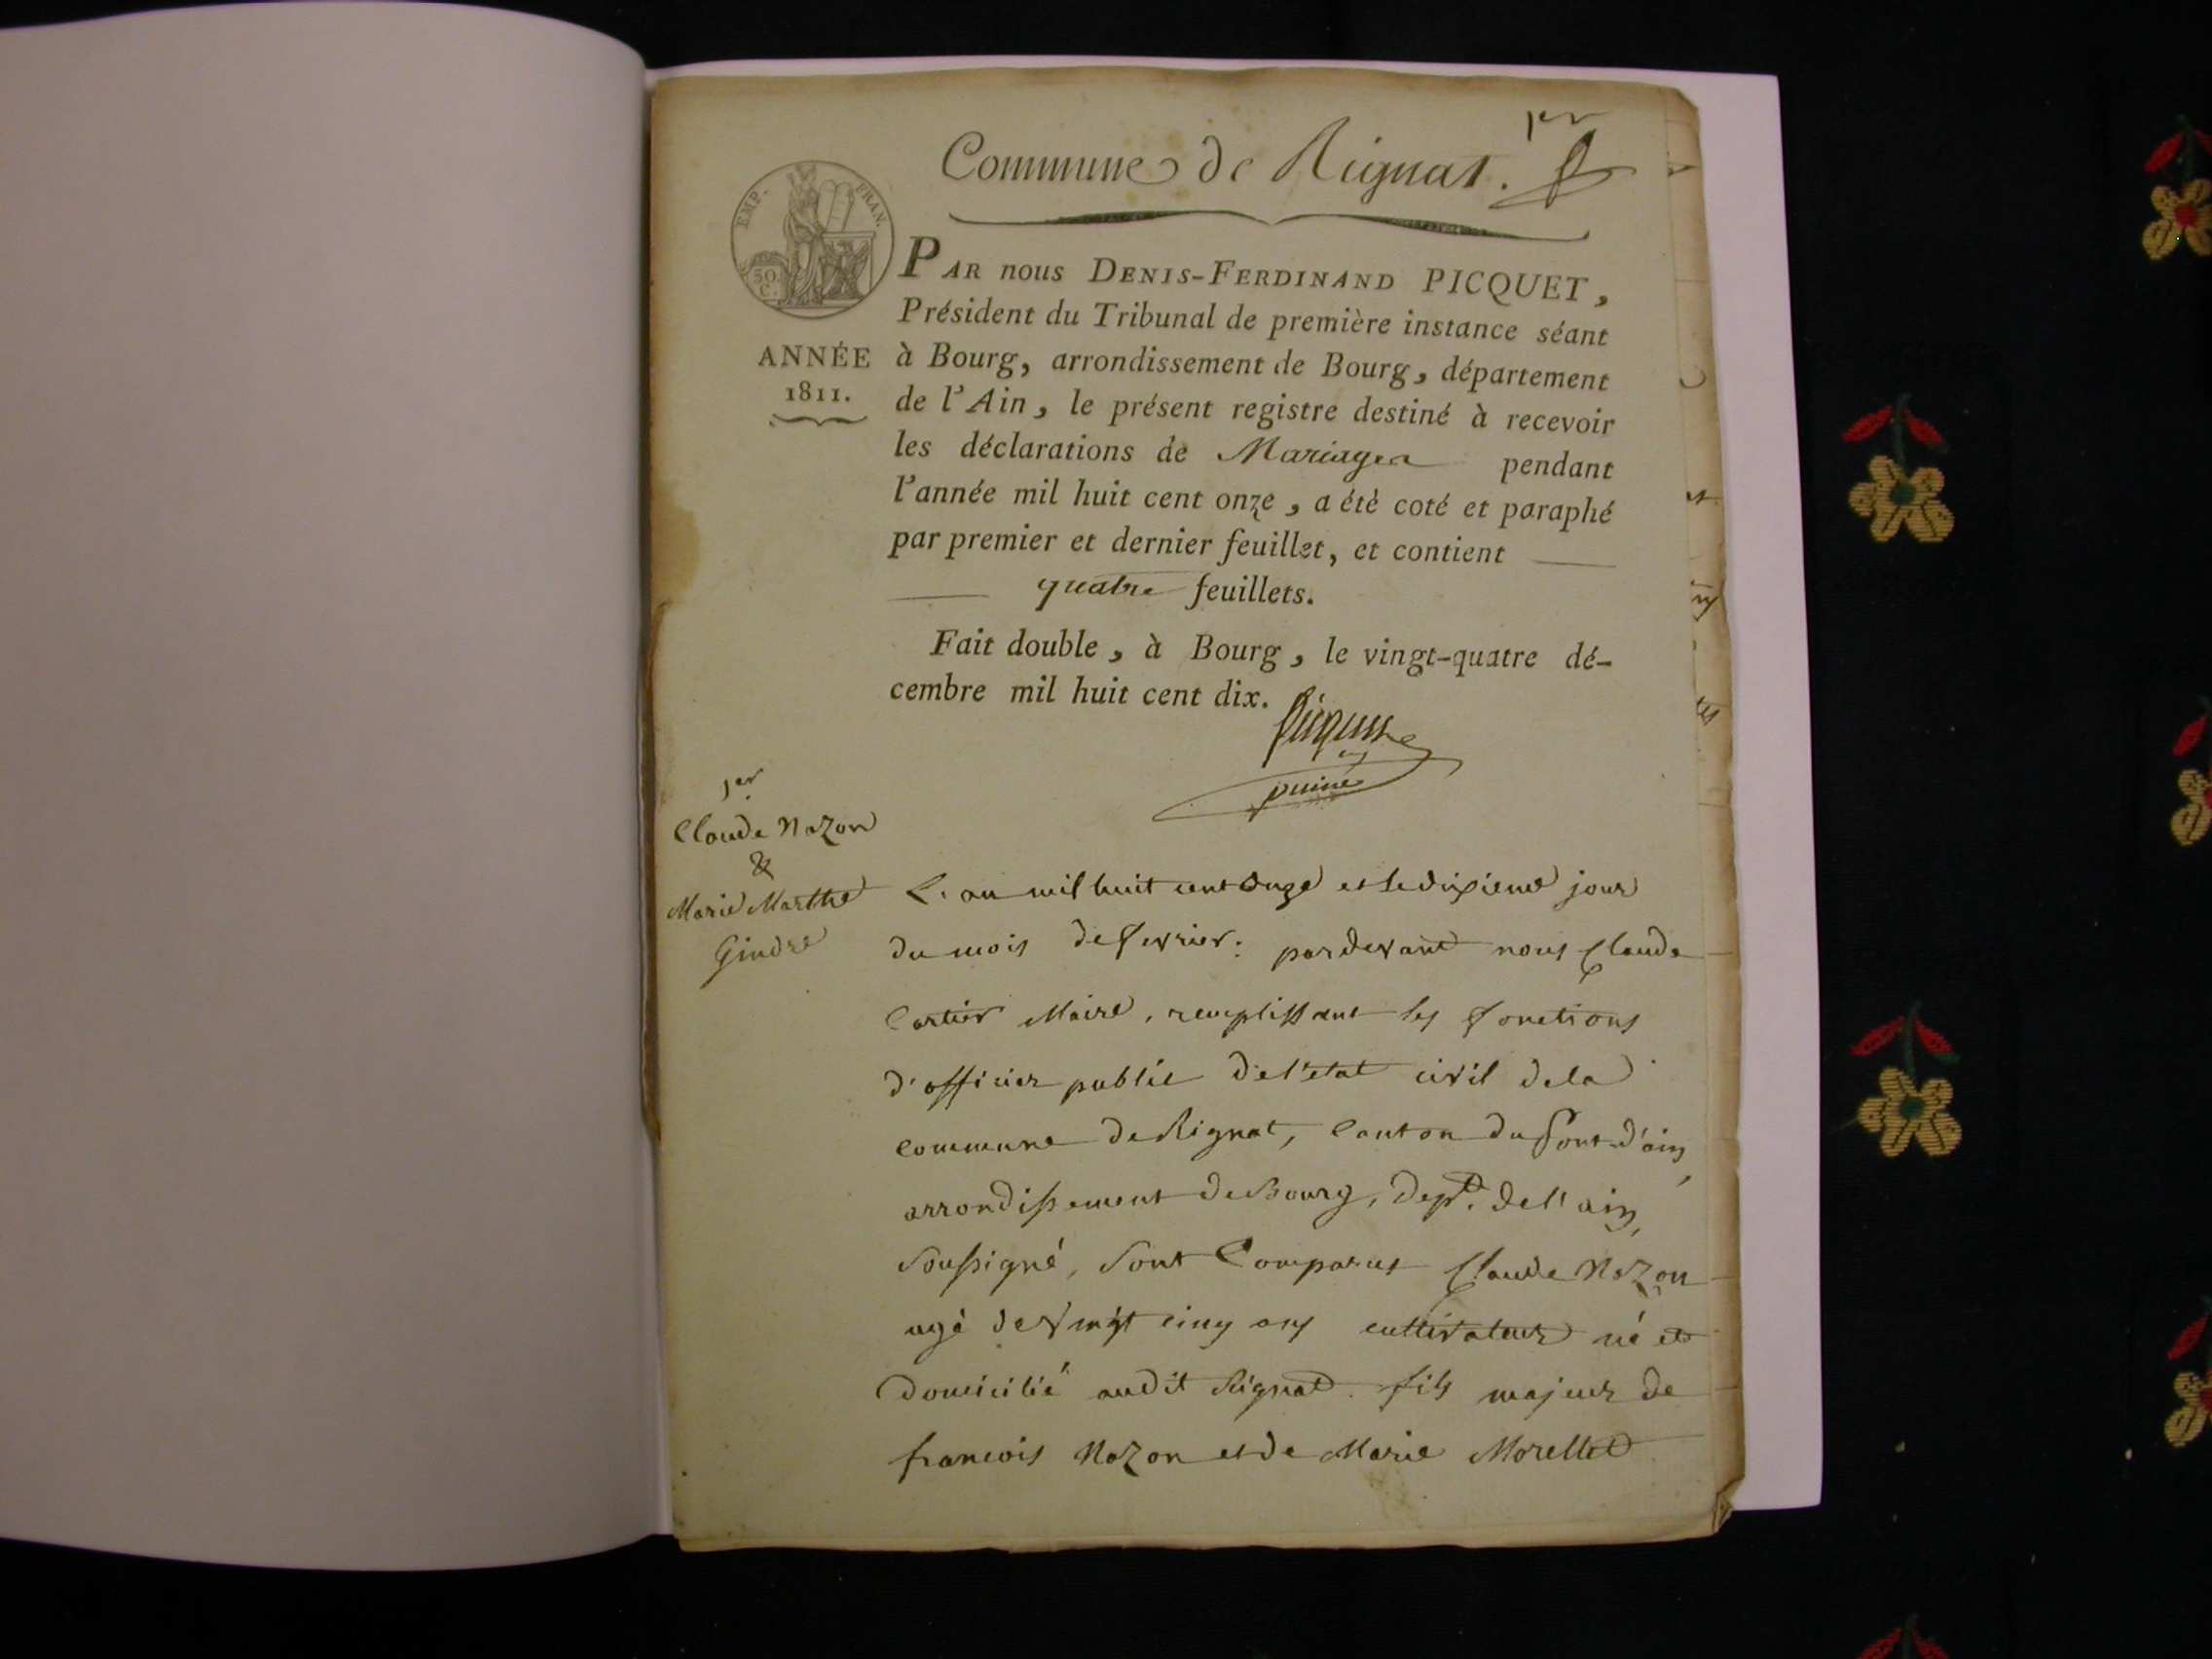 1er
Commune de Rignat.
EMP. FRAN.
50 C.
PAR nous DENIS-FERDINAND PICQUET,
Président du Tribunal de première instance séant
ANNÉE
1811.
à Bourg, arrondissement de Bourg, département
de l'Ain, le présent registre destiné à recevoir
les déclarations de Mariages pendant
l'année mil huit cent onze, a été coté et paraphé
par premier et dernier feuillet, et contient
quatre feuillets.
Fait double, à Bourg, le vingt-quatre dé-
cembre mil huit cent dix.
Picquet
puiné
1er
Claude Nazon
&
Marie Marthe
Gindre
L'an mil huit cent onze et le dixieme jour
du mois de fevrier: pardevant nous Claude
Cartier Maire, remplissant les fonctions
d'officier public de l'etat civil de la
commune de Rignat, Canton du Pont-d'ain,
arrondissement de Bourg, Dept. de l'ain,
Soussigné, Sont Comparus Claude Nazon
agé de vingt cinq ans cultivateur né et
Domicilié audit Rignat. fils majeur de
francois Nazon et de Marie Morellet